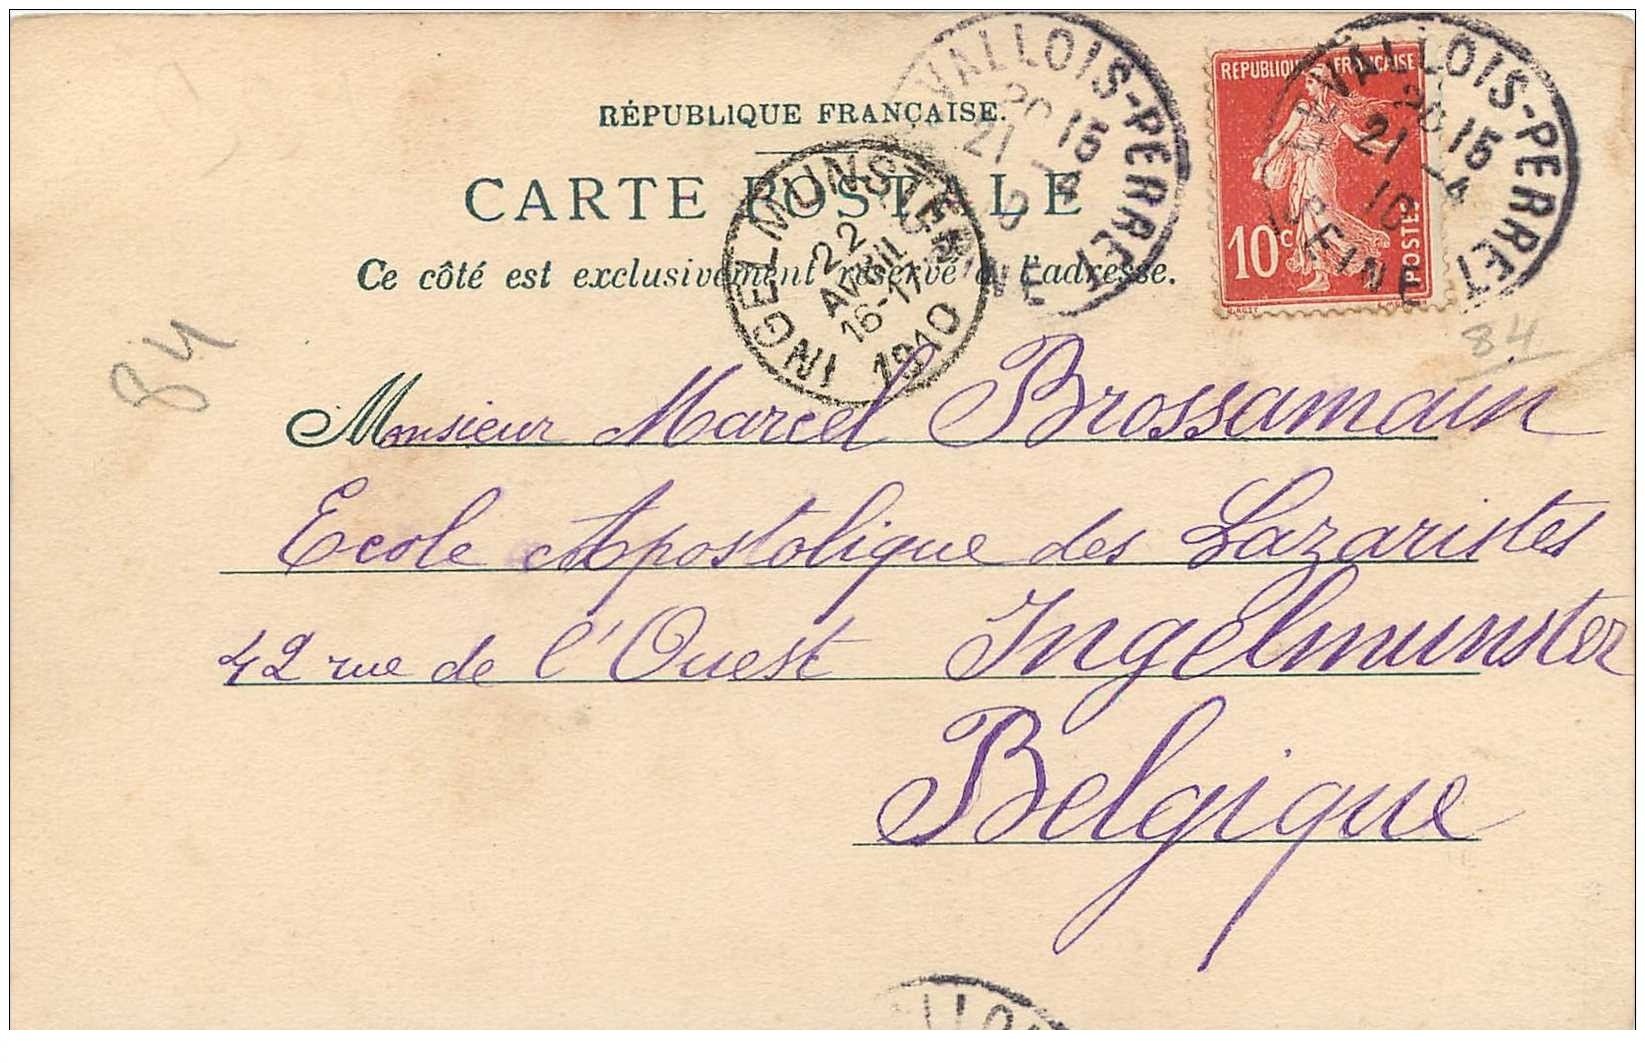 RÉPUBLIQUE FRANÇAISE.
CARTE POSTALE
Ce côté est exclusivement réservé à l'adresse.
LEVALLOIS-PERRET
20 15
21 -4
10
SEINE
RÉPUBLIQUE FRANÇAISE
10c
POSTES
LEVALLOIS-PERRET
20 15
21 -4
10
SEINE
INGELMUNSTER
22
AVRIL
16-17
1910
84
84
Monsieur Marcel Brossamain
Ecole Apostolique des Lazaristes
42 rue de l'Ouest Ingelmunster
Belgique